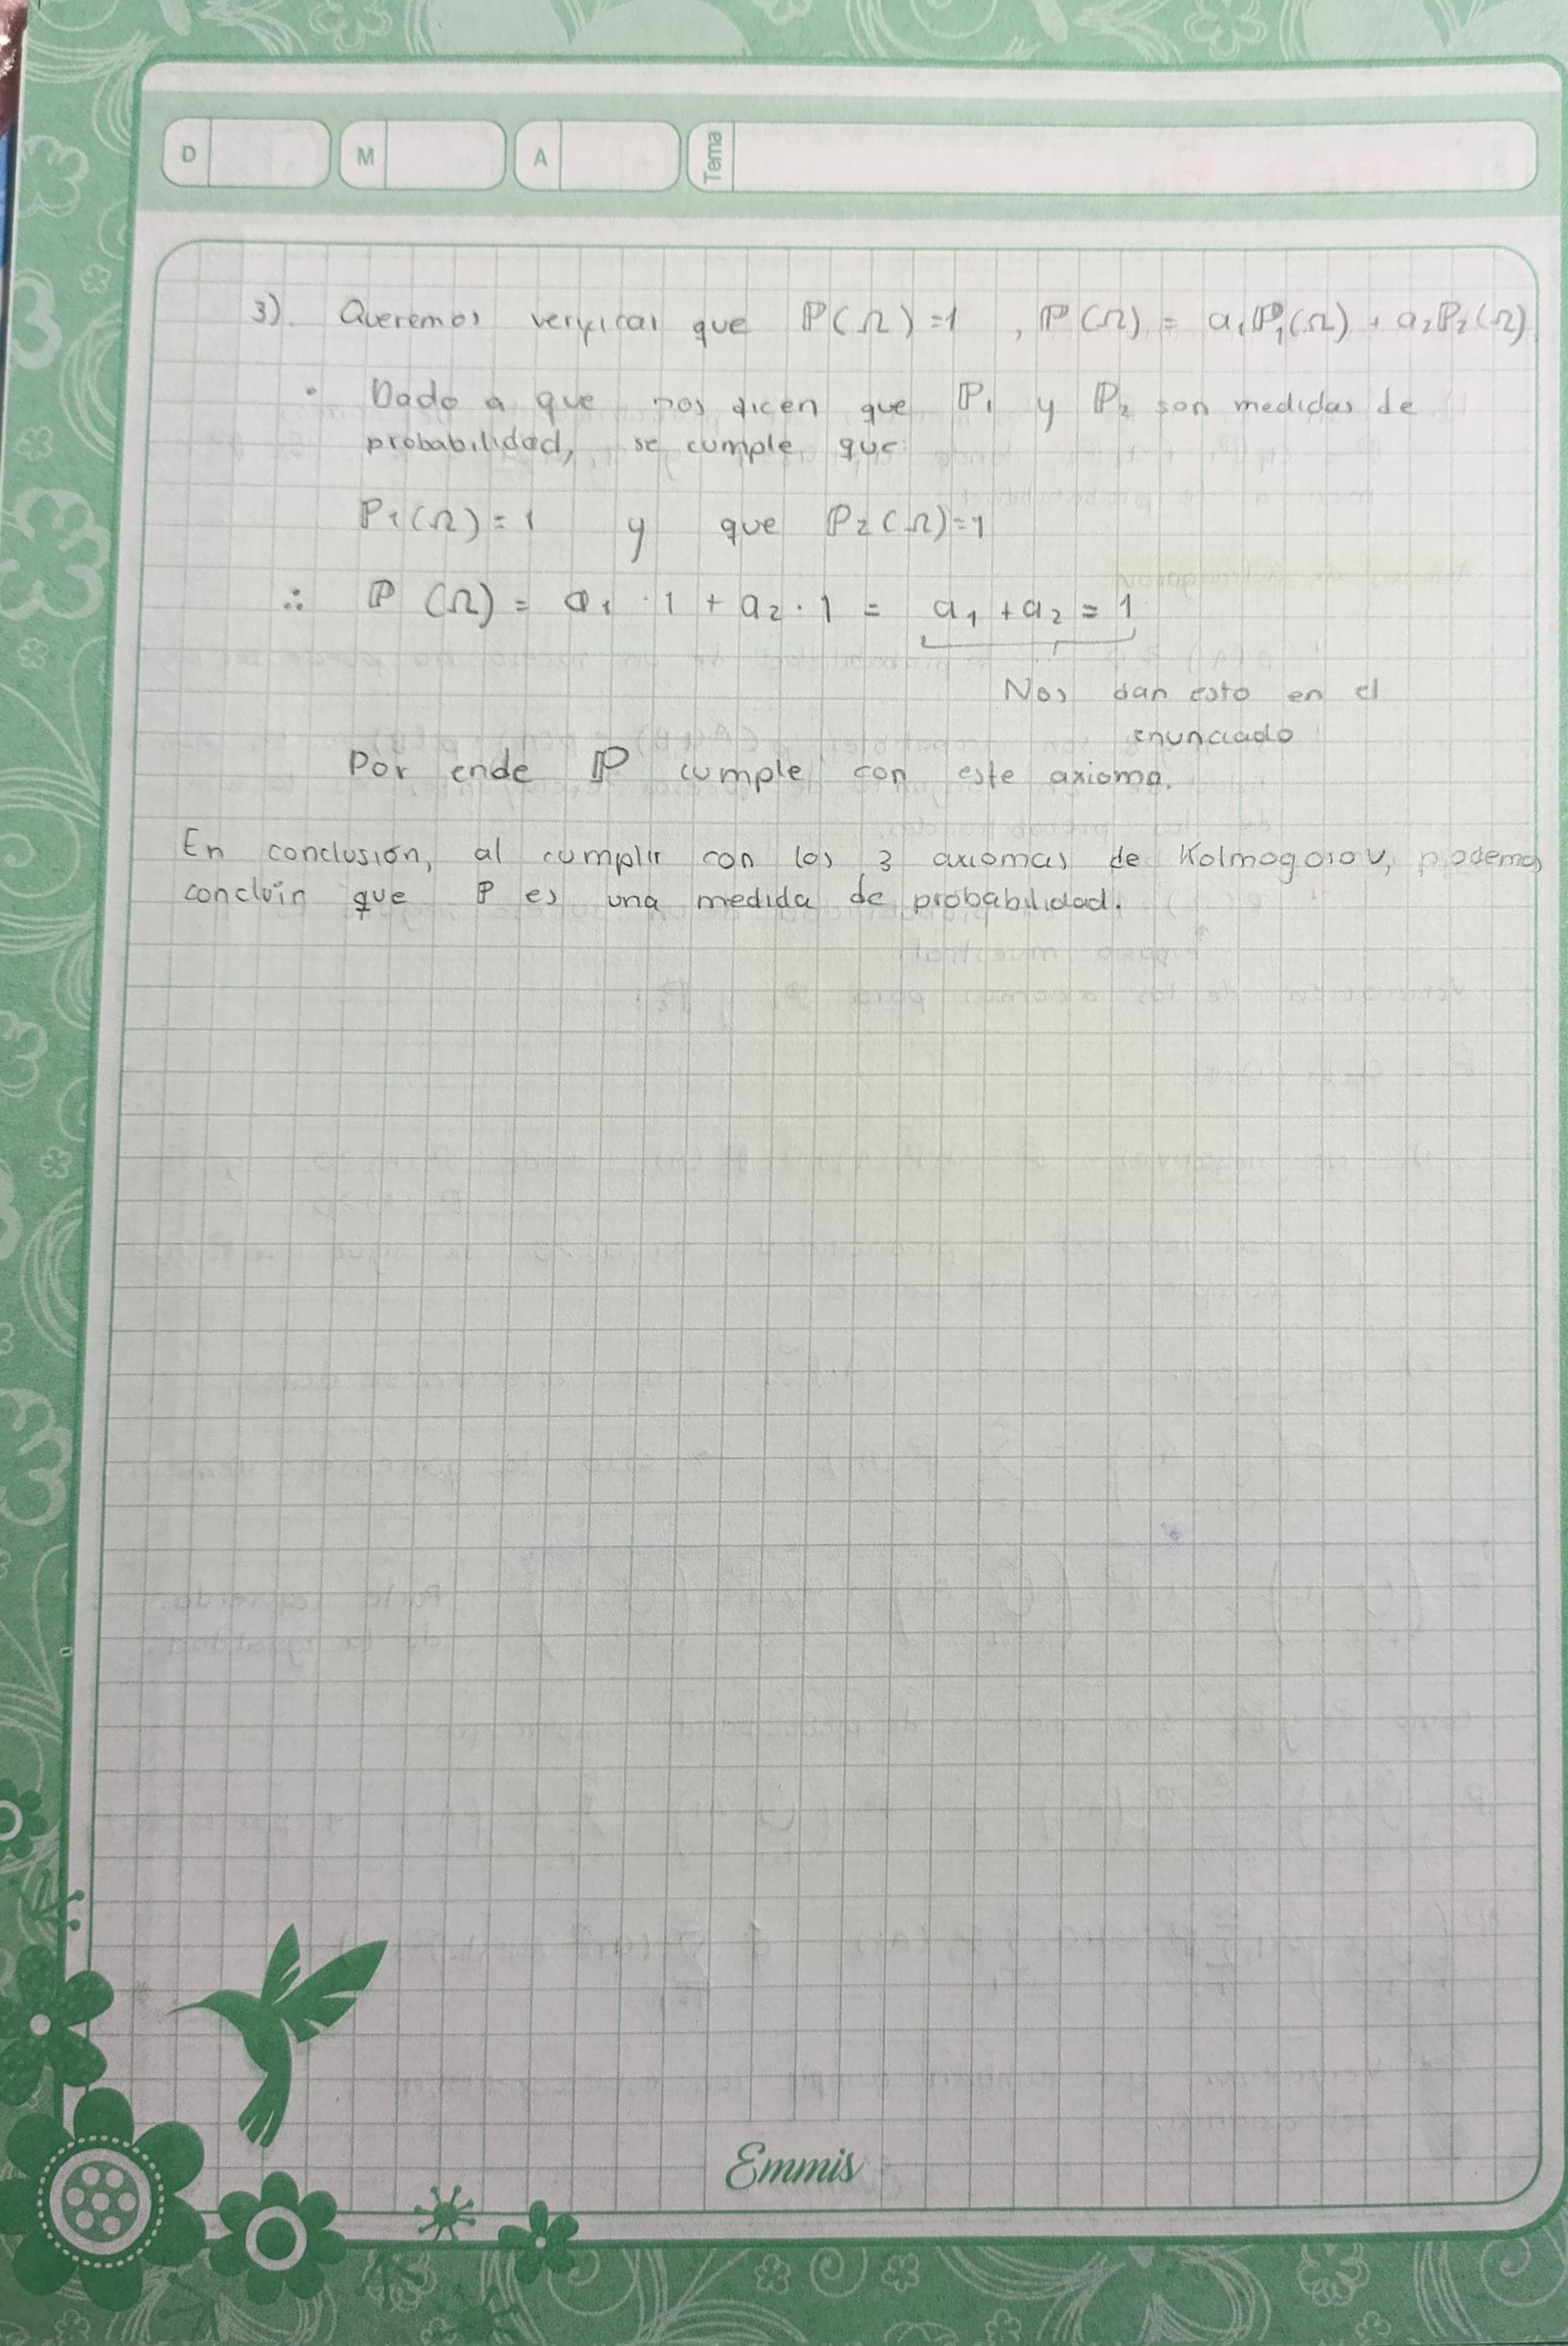 D M A Tema
3). Queremos verificar que ℙ(Ω)=1 , ℙ(Ω) = a₁ℙ₁(Ω) + a₂ℙ₂(Ω)
• Dado a que nos dicen que ℙ₁ y ℙ₂ son medidas de
probabilidad, se cumple que:
ℙ₁(Ω)=1 y que ℙ₂(Ω)=1
∴ ℙ(Ω) = a₁·1 + a₂·1 = a₁ + a₂ = 1
Nos dan esto en el
enunciado
Por ende ℙ cumple con este axioma.
En conclusión, al cumplir con los 3 axiomas de Kolmogorov, podemos
concluir que ℙ es una medida de probabilidad.
Emmis